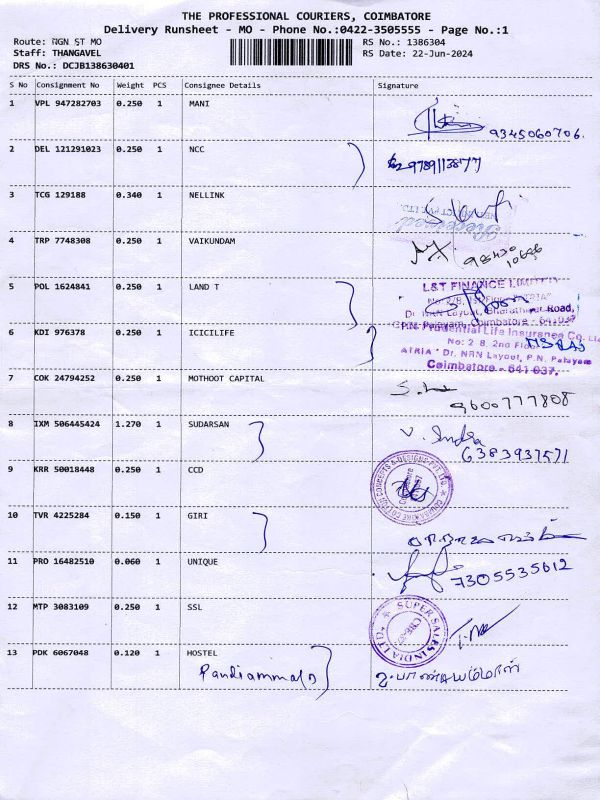 THE PROFESSIONAL COURIERS, COIMBATORE
Delivery Runsheet - MO - Phone No.:0422-3505555 - Page No.:1
Route: NGN ST MO
RS No.: 1386304
Staff: THANGAVEL
RS Date: 22-Jun-2024
DRS No.: DCJB138630401
S No Consignment No Weight PCS Consignee Details Signature
1 VPL 947282703 0.250 1 MANI
9345060706.
2 DEL 121291023 0.250 1 NCC
9789113877
3 TCG 129188 0.340 1 NELLINK
Received
4 TRP 7748308 0.250 1 VAIKUNDAM
98430
10686
5 POL 1624841 0.250 1 LAND T
L&T FINANCE LIMITED
Dr. NRN Layout, Road,
P.N. Palayam, Coimbatore - 641 037
6 KDI 976378 0.250 1 ICICILIFE
Prudential Life Insurance Co. Ltd
No: 2 8, 2nd Floor
ATRIA" Dr. NRN Layout, P.N. Palayam
Coimbatore - 641 037.
7 COK 24794252 0.250 1 MOTHOOT CAPITAL
9600777808
8 IXM 506445424 1.270 1 SUDARSAN
V. Indra
6383937571
9 KRR 50018448 0.250 1 CCD
10 TVR 4225284 0.150 1 GIRI
11 PRO 16482510 0.060 1 UNIQUE
7305535612
12 MTP 3083109 0.250 1 SSL
SUPER SALES INDIA LTD.
13 PDK 6067048 0.120 1 HOSTEL
Pandiammal